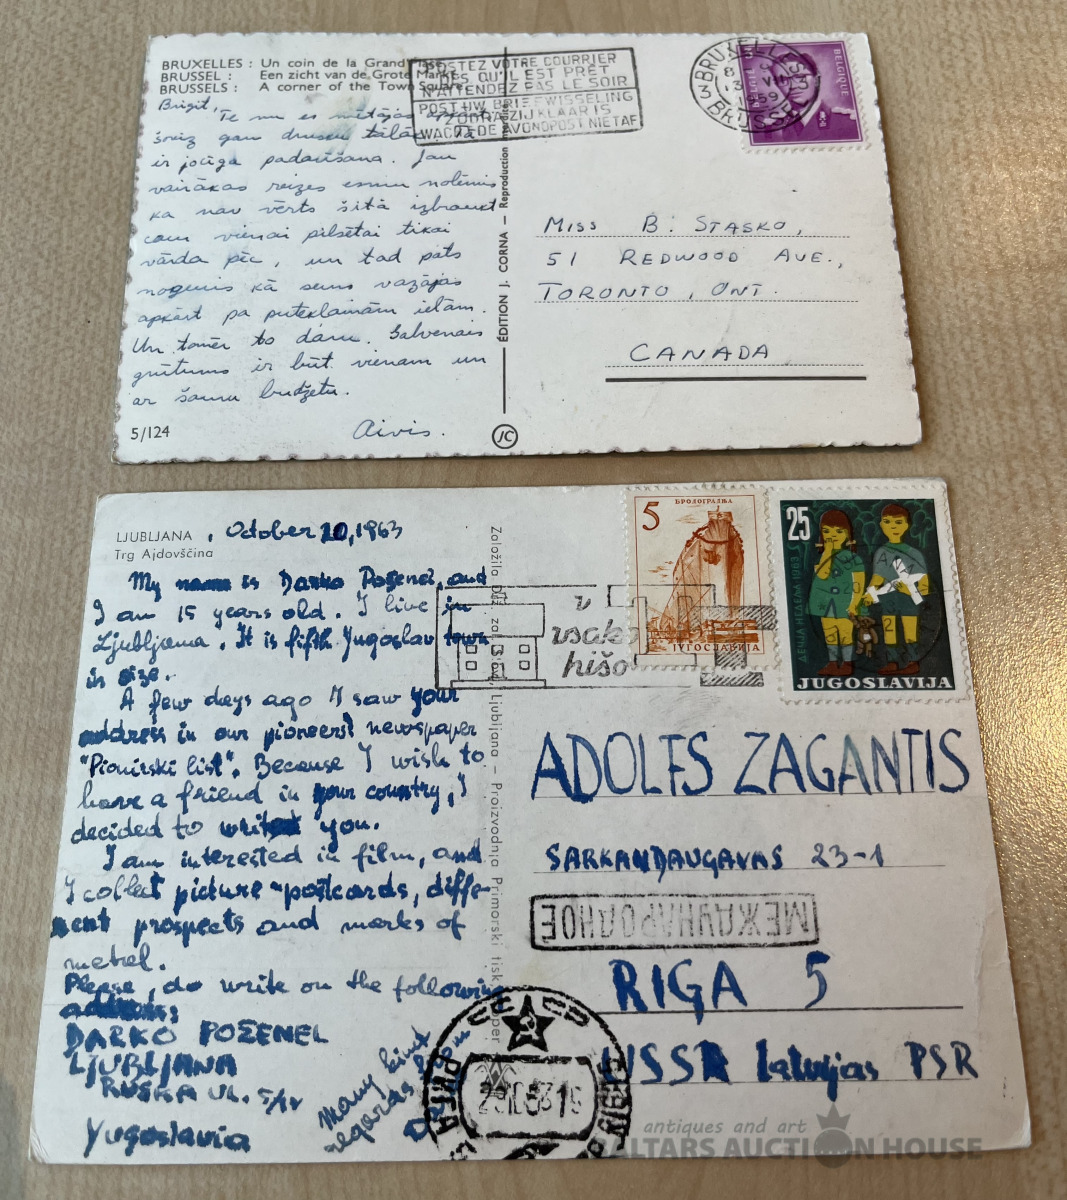 BRUXELLES : Un coin de la Grand'Place
BRUSSEL : Een zicht van de Grote Markt
BRUSSELS : A corner of the Town Square
Brigit,
Te nu es mētājos apkārt
šoreiz gan drusku tālāk.
ir jocīga padarīšana. Jau
vairākas reizes esmu nolēmis
ka nav vērts šitā izbraukt
cauri vienai pilsētai tikai
vārda pēc, un tad pats
noķeru kā sens vazājos
apkārt pa putekļainām ielām.
Un tomēr to daru. Galvenais
grūtums ir būt vienam un
ar šauru budžetu.
Aivis.
5/124
ÉDITION J. CORNA – Reproduction interdite
JC
POSTEZ VOTRE COURRIER
DES QU'IL EST PRÊT
N'ATTENDEZ PAS LE SOIR
POST UW BRIEFWISSELING
ZODRA ZIJ KLAAR IS
WACHT DE AVONDPOST NIET AF
BRUXELLES 3
3 BRUSSEL
BELGIQUE
BELGIË
MISS B. STASKO,
51 REDWOOD AVE.,
TORONTO, ONT.
CANADA
LJUBLJANA, October 20, 1963
Trg Ajdovščina
My name is Darko Poženel, and
I am 15 years old. I live in
Ljubljana. It is fifth Yugoslav town
in size.
A few days ago I saw your
address in our pioneers' newspaper
"Pionirski list". Because I wish to
have a friend in your country, I
decided to write you.
I am interested in film, and
I collect picture-postcards, diffe-
rent prospects and marks of
metel.
Please, do write on the following
address:
DARKO POŽENEL
LJUBLJANA
RUSKA UL. 5/IV
Yugoslavia
Many kind
regards
Ljubljana – Proizvodnja Primorski tisk Koper
v
vsako
hišo
5
БРОДОГРАДЊА
ЈУГОСЛАВИЈА
25
ДЕЧЈА НЕДЕЉА 1963
JUGOSLAVIJA
ADOLFS ZAGANTIS
SARKANDAUGAVAS 23-1
МЕЖДУНАРОДНОЕ
RIGA 5
USSR Latvijas PSR
СССР
РИГА
antiques and art
BALTARS AUCTION HOUSE